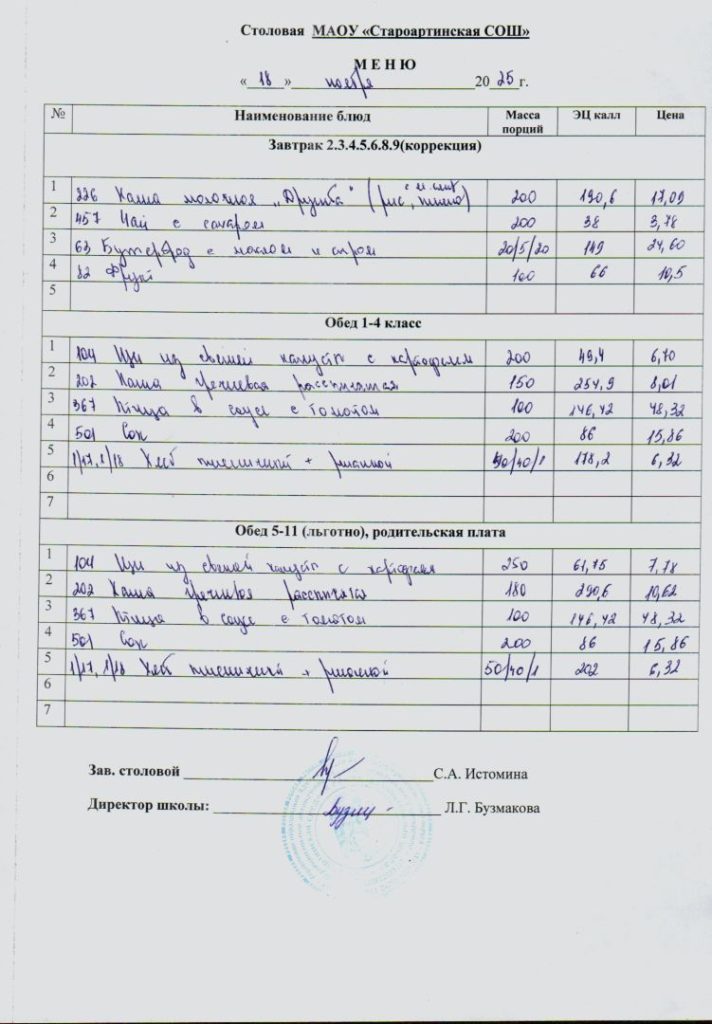 Столовая МАОУ «Староартинская СОШ»
М Е Н Ю
« 18 » ноября 2025 г.
№ Наименование блюд Масса порций ЭЦ калл Цена
Завтрак 2.3.4.5.6.8.9(коррекция)
1 226 Каша молочная „Дружба" (рис, пшено) с м. слив 200 190,6 17,09
2 457 Чай с сахаром 200 38 3,78
3 63 Бутерброд с маслом и сыром 20/5/20 149 24,60
4 82 Фрукт 100 66 10,5
5
Обед 1-4 класс
1 104 Щи из свежей капусты с картофелем 200 49,4 6,70
2 202 Каша гречневая рассыпчатая 150 254,9 8,01
3 367 Птица в соусе с томатом 100 146,42 48,32
4 501 Сок 200 86 15,86
5 1/17, 1/18 Хлеб пшеничный + ржаной 40/1 178,2 6,32
6
7
Обед 5-11 (льготно), родительская плата
1 104 Щи из свежей капусты с картофелем 250 61,75 7,78
2 202 Каша гречневая рассыпчатая 180 290,6 10,62
3 367 Птица в соусе с томатом 100 146,42 48,32
4 501 Сок 200 86 15,86
5 1/17, 1/18 Хлеб пшеничный + ржаной 50/40/1 202 6,32
6
7
Зав. столовой С.А. Истомина
Директор школы: Л.Г. Бузмакова